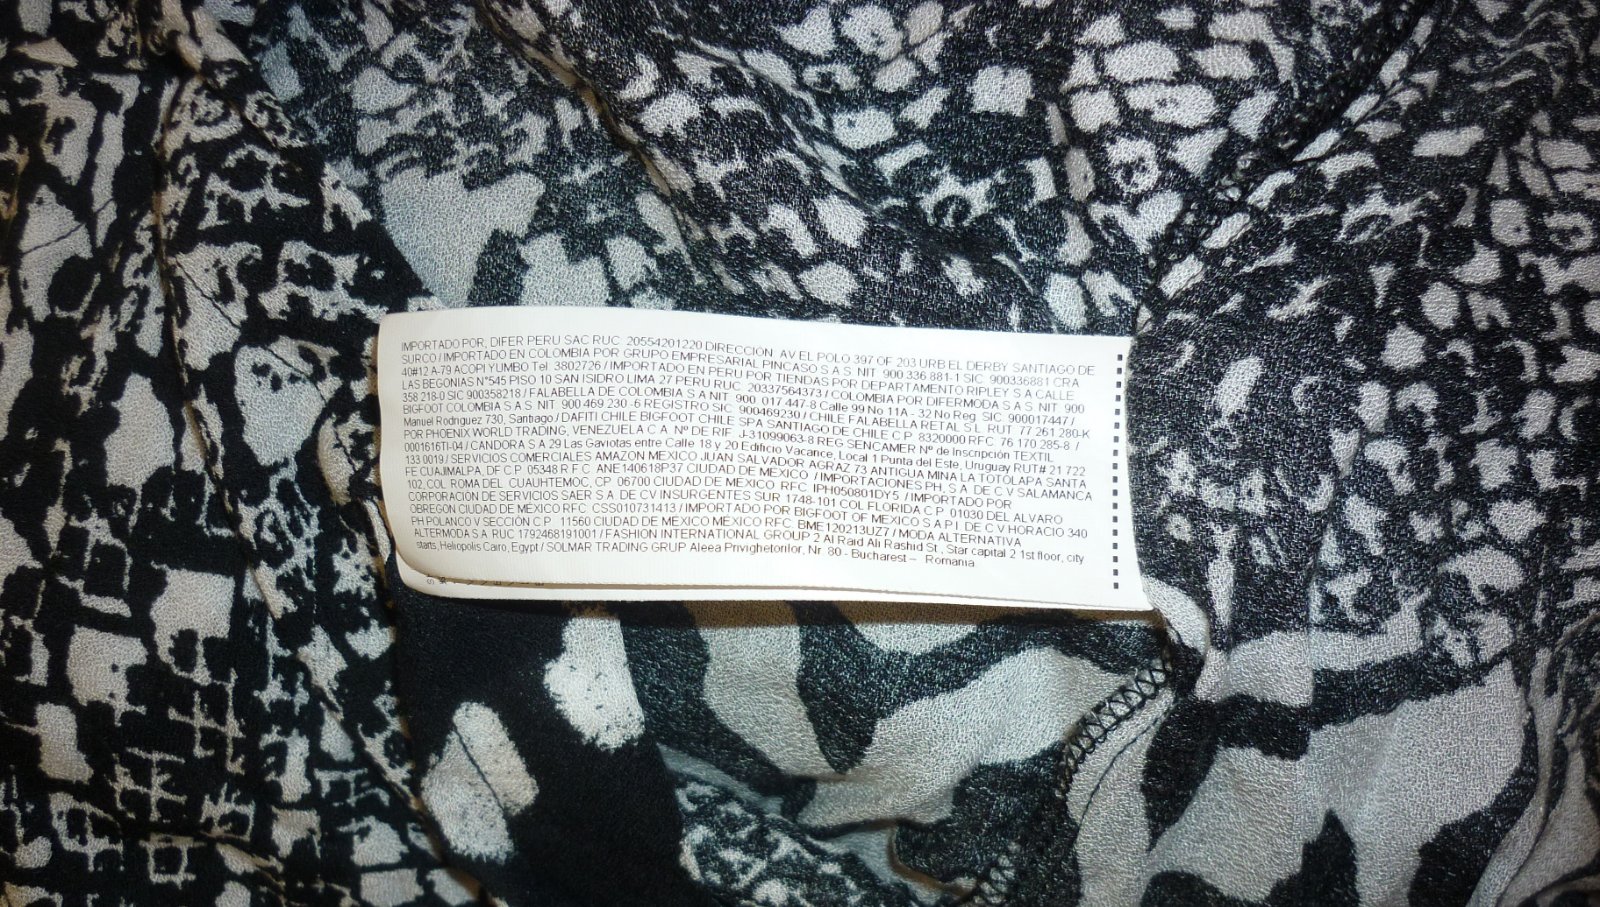 IMPORTADO POR, DIFER PERU SAC RUC 20554201220 DIRECCIÓN AV EL POLO 397 OF 203 URB EL DERBY SANTIAGO DE
SURCO / IMPORTADO EN COLOMBIA POR GRUPO EMPRESARIAL PINCASO S A S NIT 900 336 881-1 SIC 900336881 CRA
40#12 A-79 ACOPI YUMBO Tel 3802726 / IMPORTADO EN PERU POR TIENDAS POR DEPARTAMENTO RIPLEY S A CALLE
LAS BEGONIAS N°545 PISO 10 SAN ISIDRO LIMA 27 PERU RUC 20337564373 / COLOMBIA POR DIFERMODA S A S NIT 900
358 218-0 SIC 900358218 / FALABELLA DE COLOMBIA S A NIT 900 017 447-8 Calle 99 No 11A - 32 No Reg SIC 900017447 /
BIGFOOT COLOMBIA S A S NIT 900 469 230 -6 REGISTRO SIC 900469230 / CHILE FALABELLA RETAIL S L RUT 77 261 280-K
Manuel Rodriguez 730, Santiago / DAFITI CHILE BIGFOOT CHILE SPA SANTIAGO DE CHILE C P 8320000 RFC 76 170 285-8 /
POR PHOENIX WORLD TRADING, VENEZUELA C A Nº DE RIF J-31099063-8 REG SENCAMER Nº de Inscripción TEXTIL
0001616TI-04 / CANDORA S A 29 Las Gaviotas entre Calle 18 y 20 Edificio Vacance, Local 1 Punta del Este, Uruguay RUT# 21 722
133 0019 / SERVICIOS COMERCIALES AMAZON MEXICO JUAN SALVADOR AGRAZ 73 ANTIGUA MINA LA TOTOLAPA SANTA
FE CUAJIMALPA, DF C P 05348 R F C ANE140618P37 CIUDAD DE MEXICO / IMPORTACIONES PH, S A DE C V SALAMANCA
102, COL ROMA DEL CUAUHTEMOC, CP 06700 CIUDAD DE MEXICO RFC IPH050801DY5 / IMPORTADO POR
CORPORACIÓN DE SERVICIOS SAER S A DE CV INSURGENTES SUR 1748-101 COL FLORIDA C P 01030 DEL ALVARO
OBREGON CIUDAD DE MEXICO RFC CSS010731413 / IMPORTADO POR BIGFOOT OF MEXICO S A P I DE C V HORACIO 340
PH POLANCO V SECCIÓN C P 11560 CIUDAD DE MEXICO MÉXICO RFC BME120213UZ7 / MODA ALTERNATIVA
ALTERMODA S A RUC 1792468191001 / FASHION INTERNATIONAL GROUP 2 Al Raid Ali Rashid St, Star capital 2 1st floor, city
starts, Heliopolis Cairo, Egypt / SOLMAR TRADING GRUP Aleea Privighetorilor, Nr 80 - Bucharest – Romania